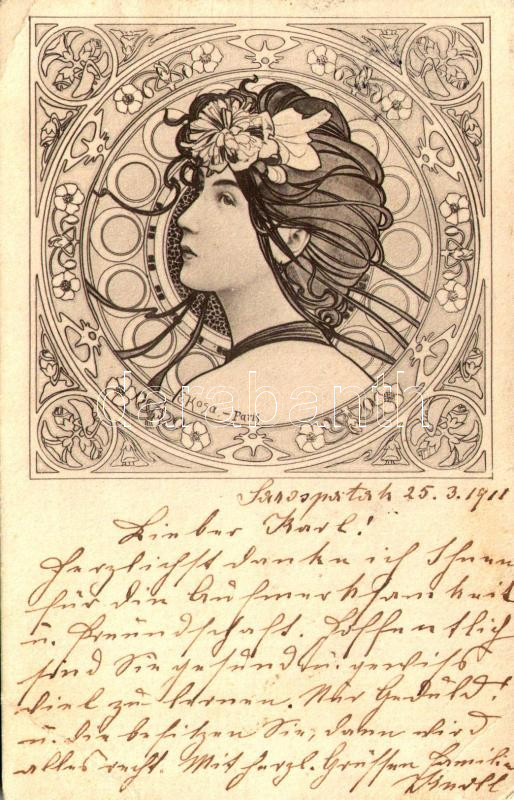 Rosa - Paris
darabanth
Sarospatak 25. 3. 1911
Lieber Karl!
Herzlichst danke ich Ihnen
für die Aufmerksamkeit
u. Freundschaft. Hoffentlich
sind Sie gesund u. gewiss
viel zu lernen. Nur Geduld!
u. die besitzen Sie, dann wird
alles recht. Mit herzl. Grüssen Familie